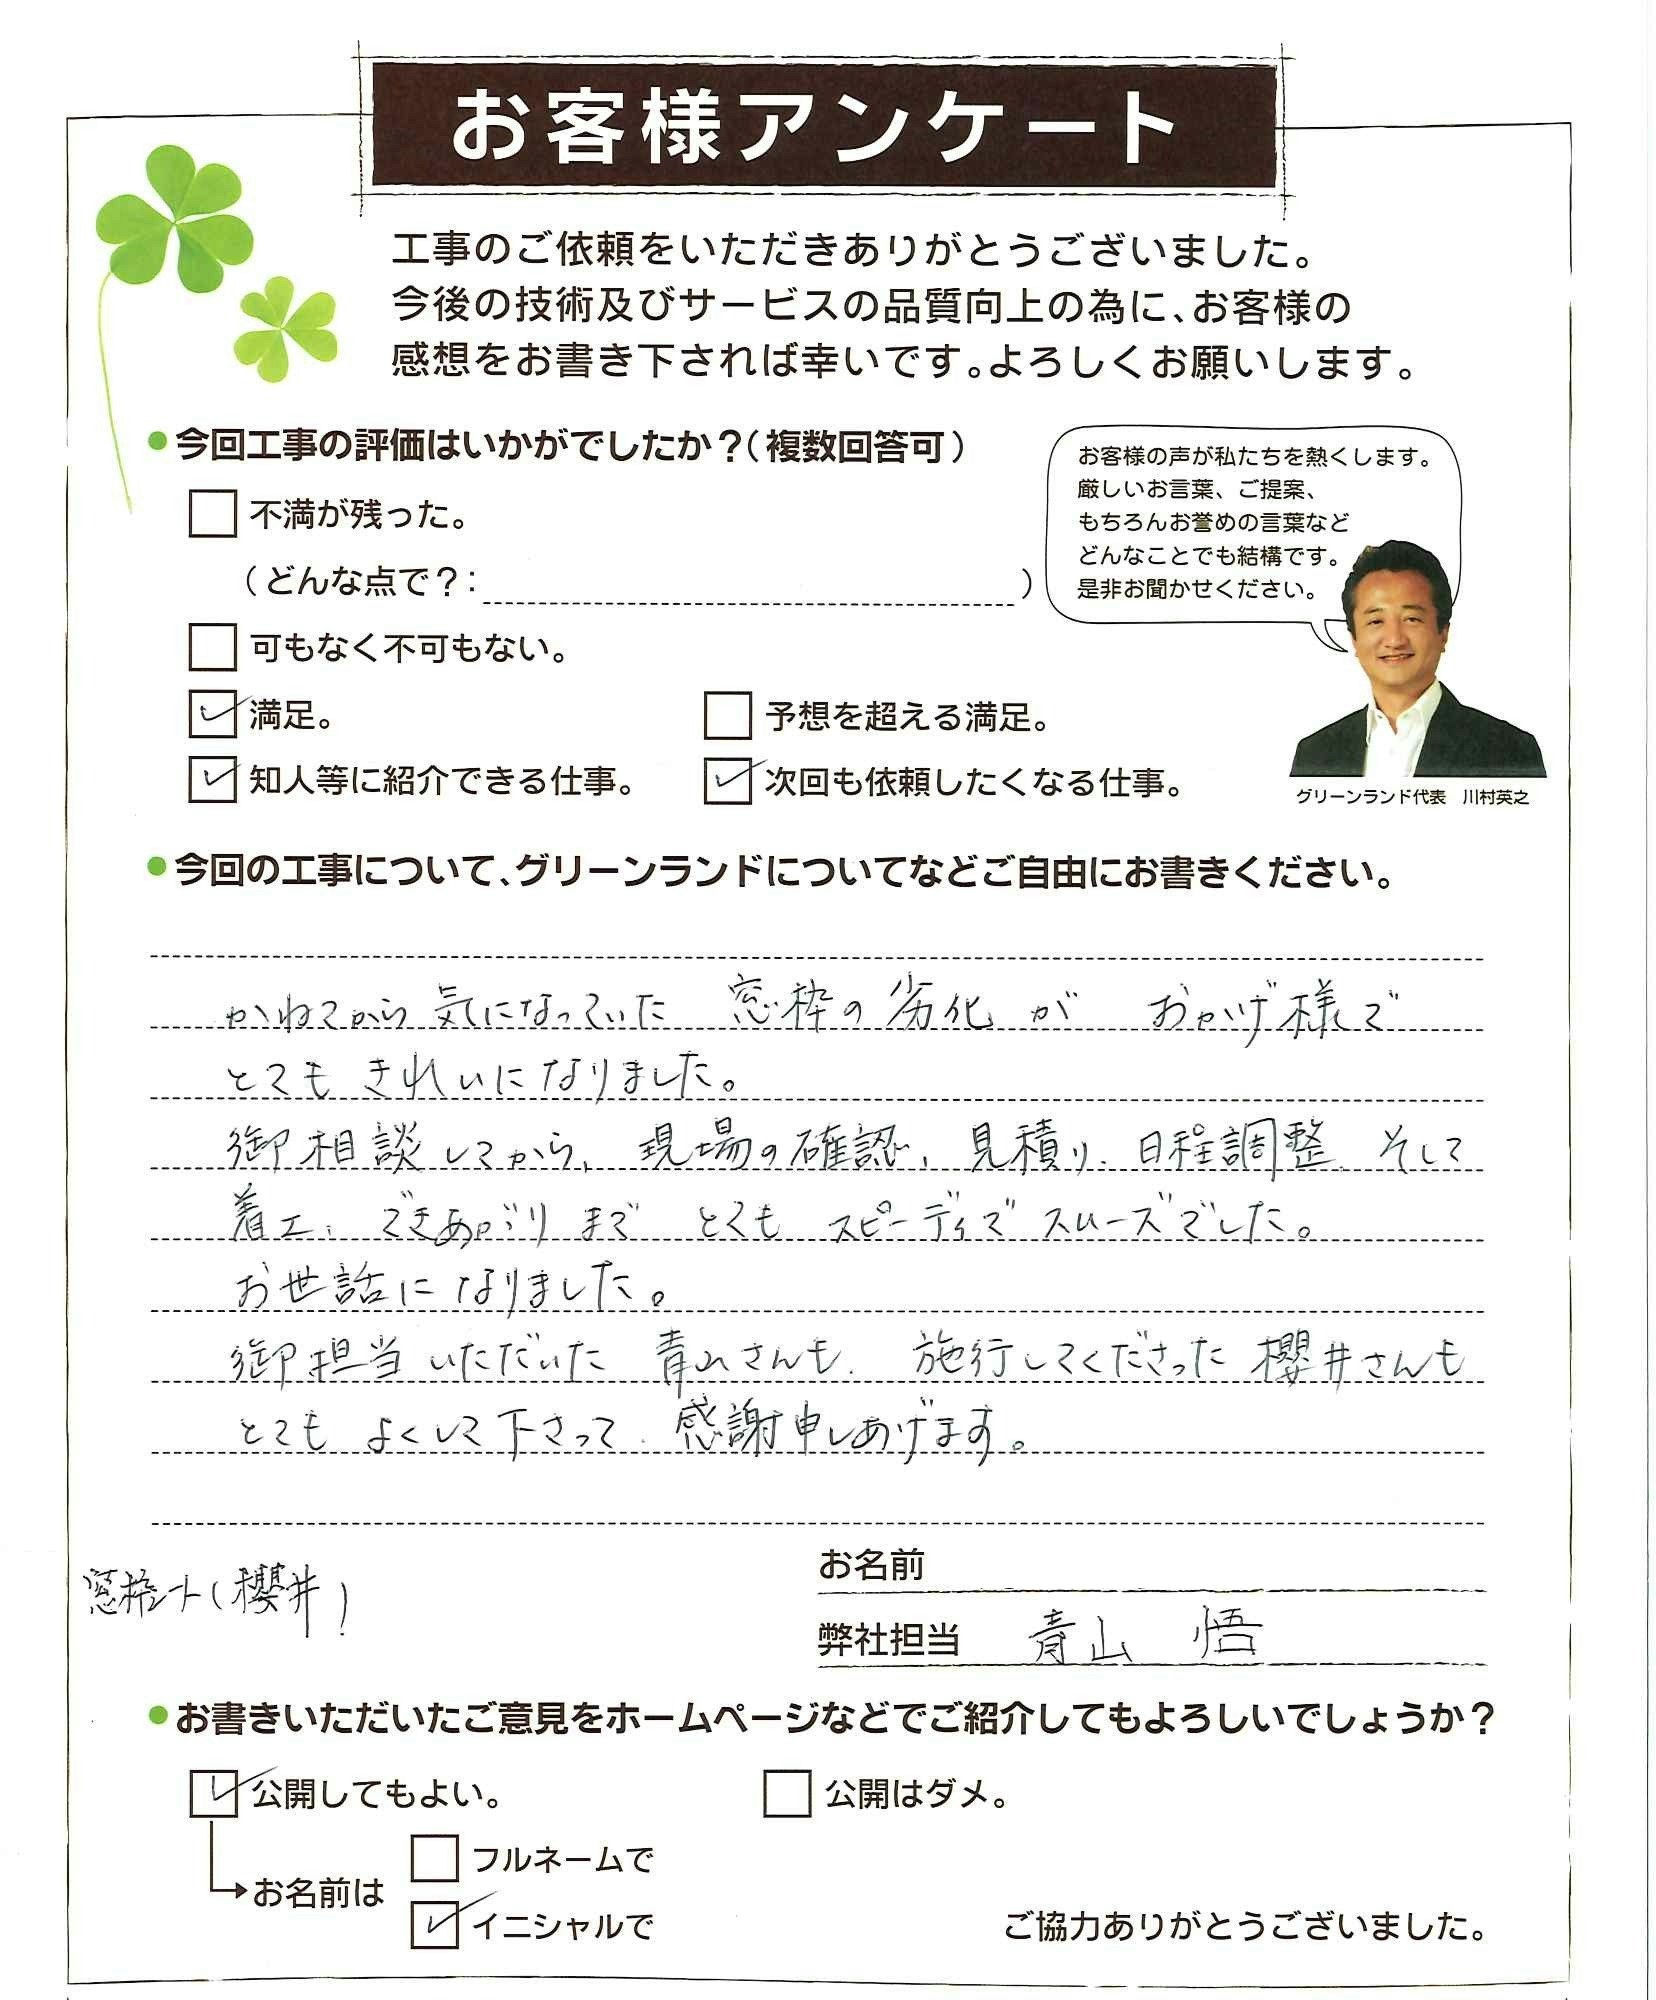 お客様アンケート
工事のご依頼をいただきありがとうございました。
今後の技術及びサービスの品質向上の為に、お客様の
感想をお書き下されば幸いです。よろしくお願いします。
●今回工事の評価はいかがでしたか？(複数回答可)
不満が残った。
(どんな点で？:                )
可もなく不可もない。
満足。 予想を超える満足。
知人等に紹介できる仕事。 次回も依頼したくなる仕事。
お客様の声が私たちを熱くします。
厳しいお言葉、ご提案、
もちろんお誉めの言葉など
どんなことでも結構です。
是非お聞かせください。
グリーンランド代表 川村英之
●今回の工事について、グリーンランドについてなどご自由にお書きください。
かねてから気になっていた 窓枠の劣化が おかげ様で
とてもきれいになりました。
御相談してから、現場の確認、見積り、日程調整、そして
着工、できあがりまで とてもスピーディでスムーズでした。
お世話になりました。
御担当いただいた 青山さんも、施行してくださった櫻井さんも
とてもよくして下さって、感謝申しあげます。
窓枠シート(櫻井)
お名前
弊社担当 青山 悟
●お書きいただいたご意見をホームページなどでご紹介してもよろしいでしょうか？
公開してもよい。 公開はダメ。
お名前は
フルネームで
イニシャルで
ご協力ありがとうございました。